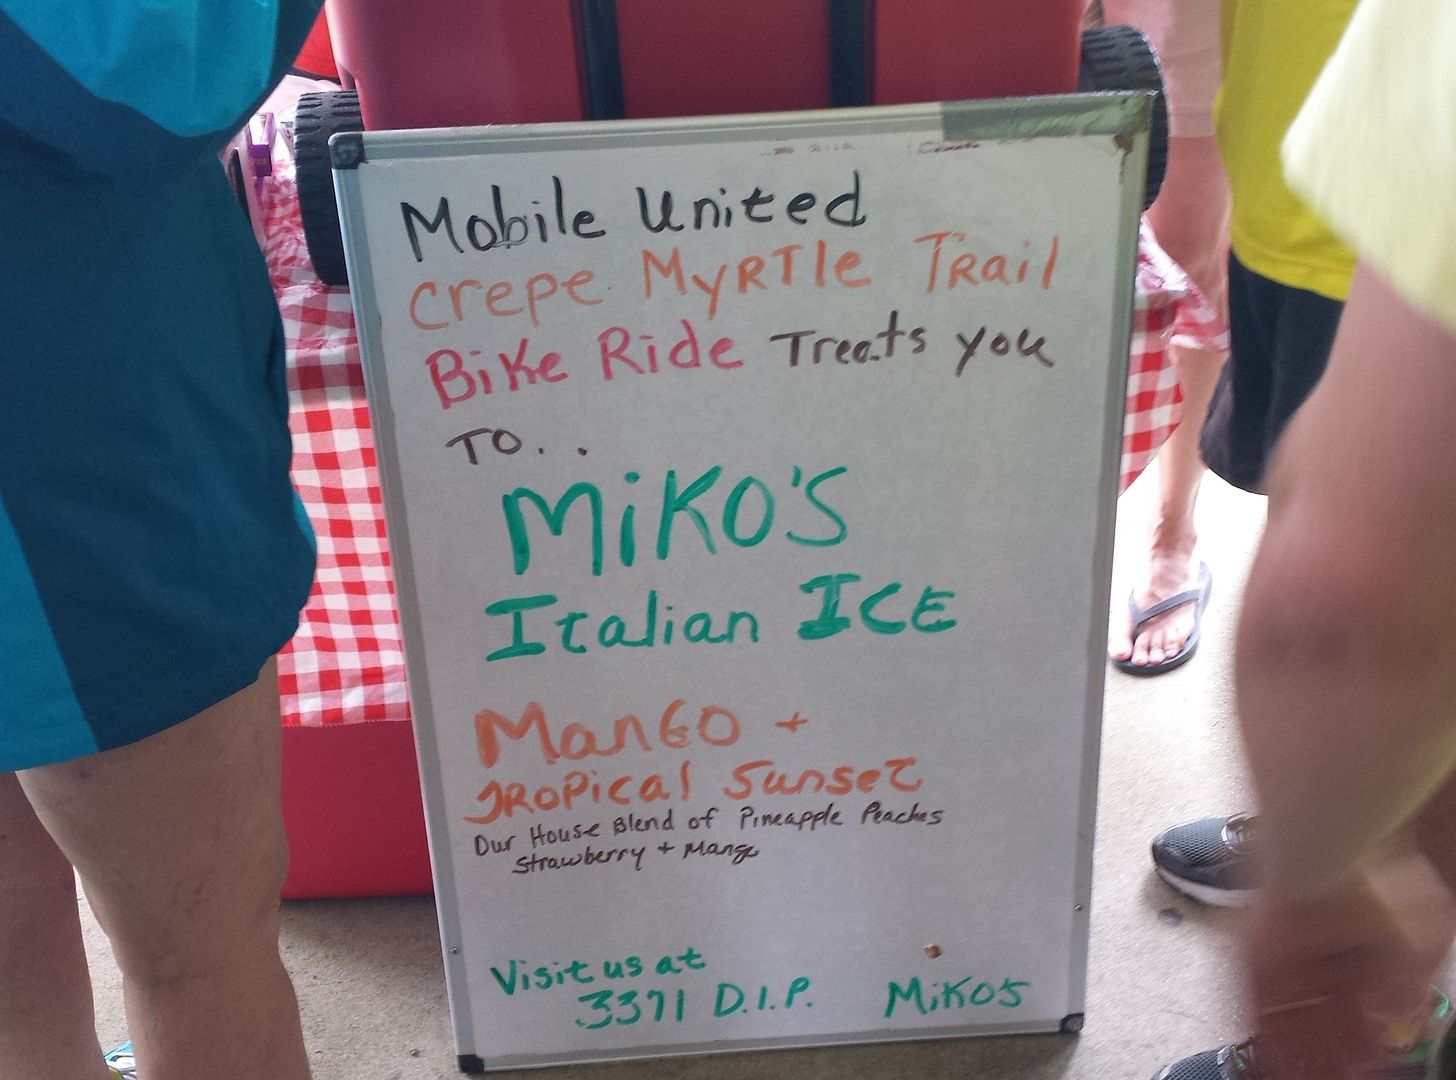 Mobile United
crepe MyRTle TRail
BiKe Ride Treats you
TO. .
MiKO'S
Italian ICE
ManGO +
TROPical Sunset
Our House Blend of Pineapple Peaches
Strawberry + Mango
Visit us at
3371 D.I.P. MiKO'S